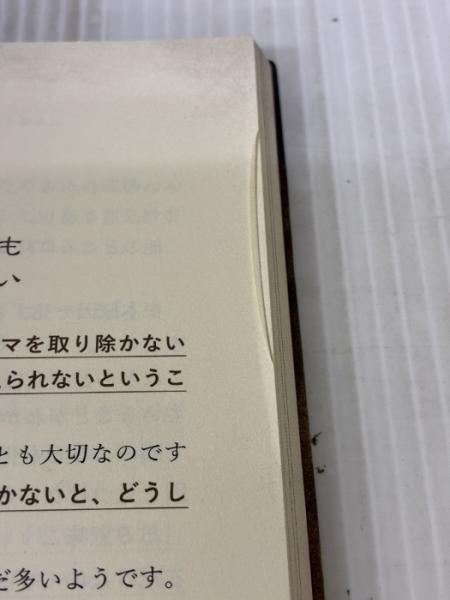 も
い
マを取り除かない
られないというこ
とも大切なのです
かないと、どうし
だ多いようです。